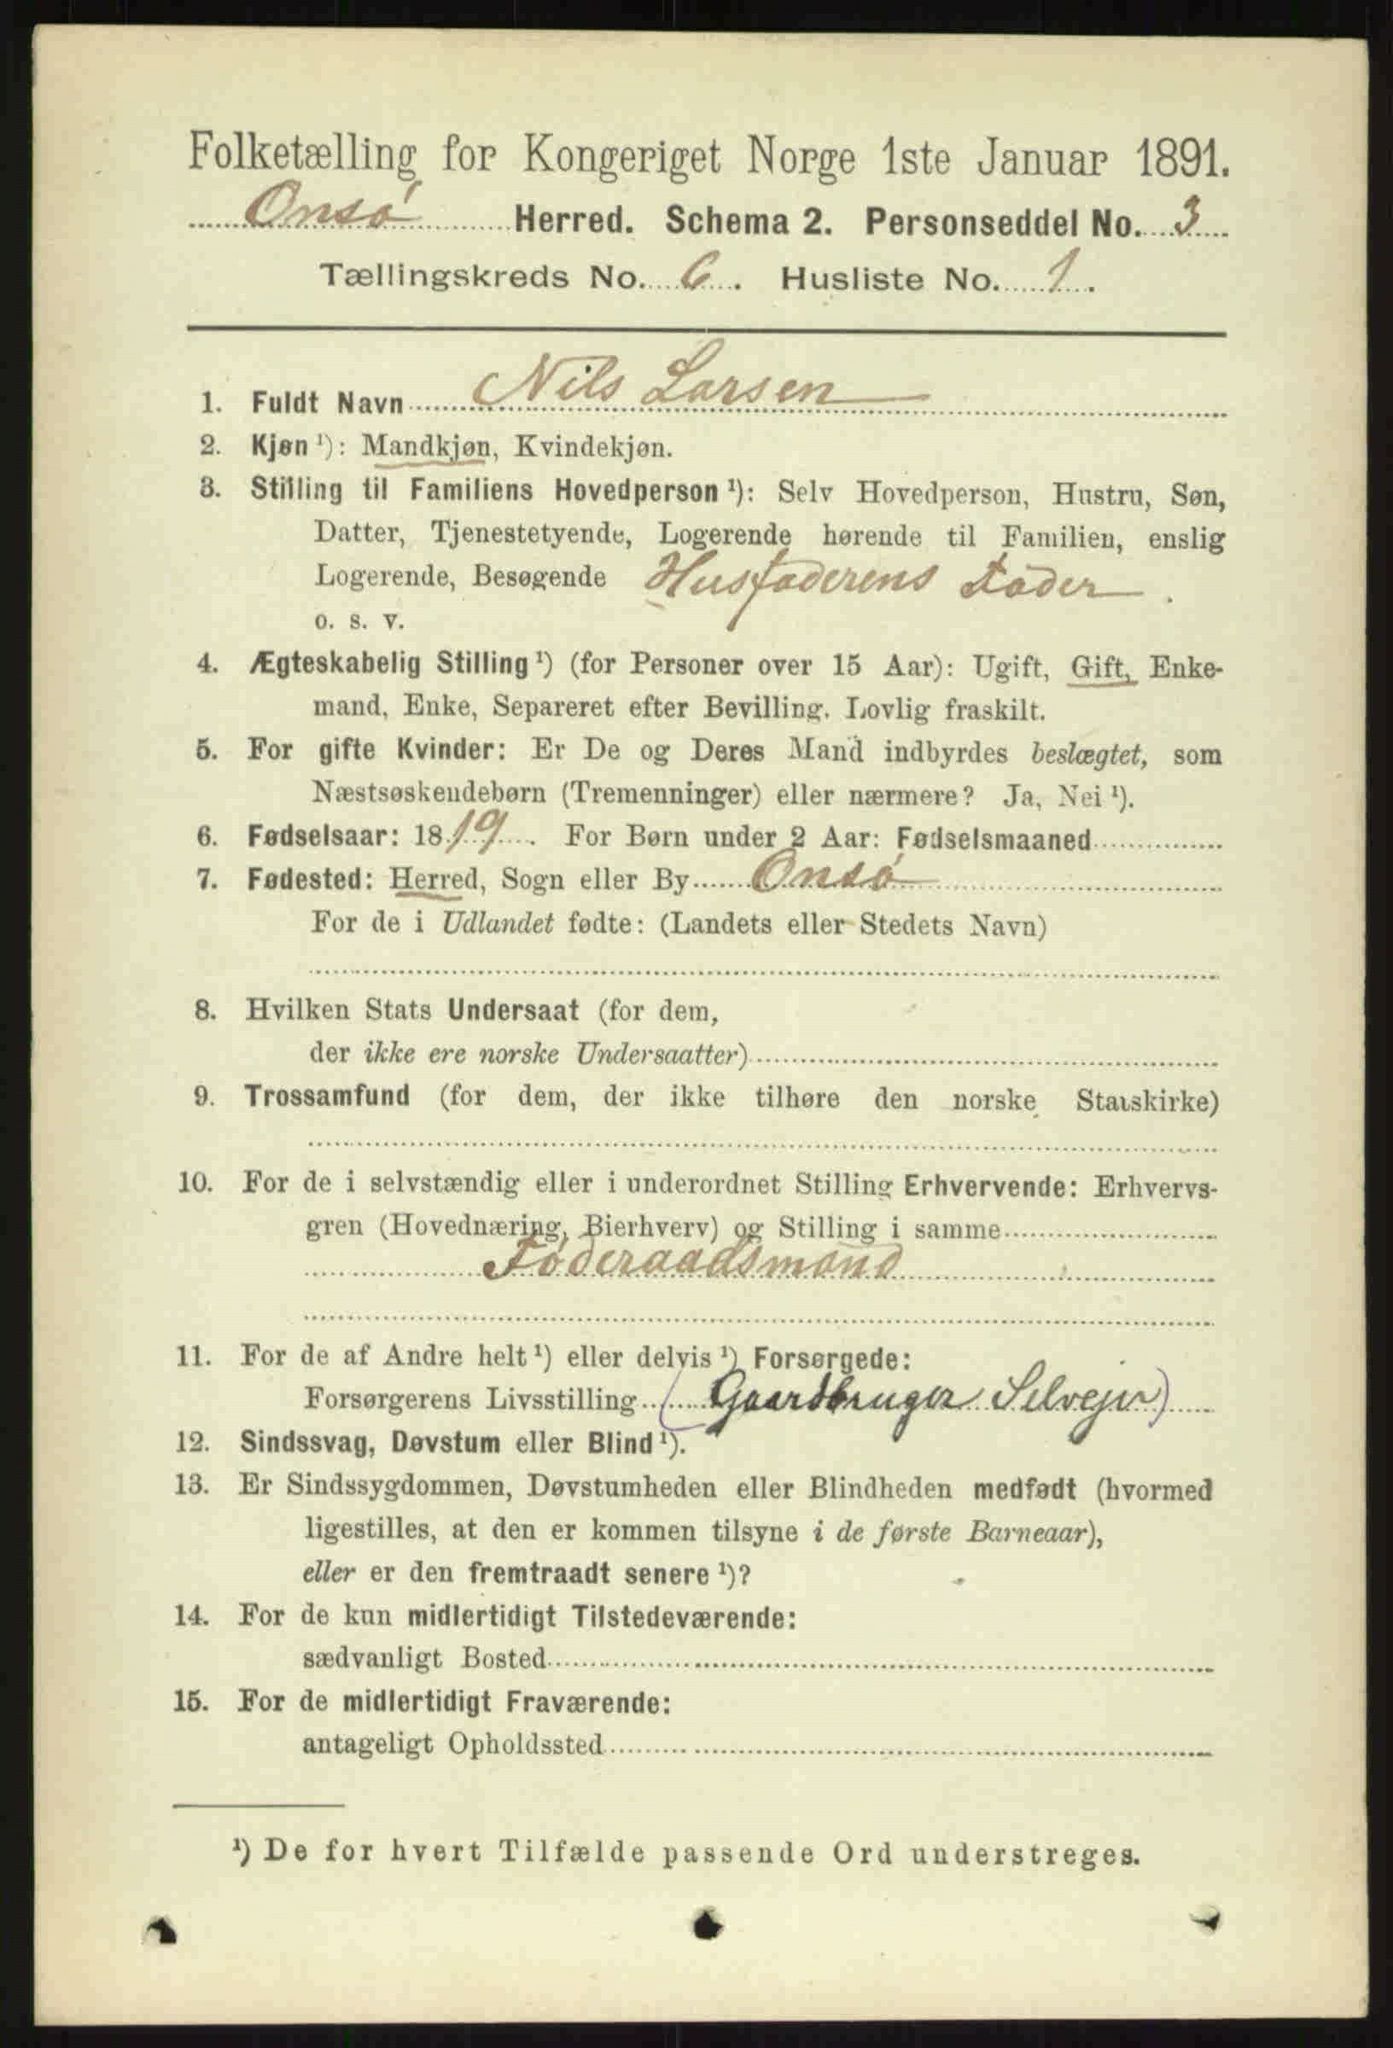 Folketælling for Kongeriget Norge 1ste Januar 1891.
Onsø Herred. Schema 2. Personseddel No. 3
Tællingskreds No. 6. Husliste No. 1.
1. Fuldt Navn Nils Larsen
2. Kjøn ¹): Mandkjøn, Kvindekjøn.
3. Stilling til Familiens Hovedperson ¹): Selv Hovedperson, Hustru, Søn,
Datter, Tjenestetyende, Logerende hørende til Familien, enslig
Logerende, Besøgende Husfaderens Fader.
o. s. v.
4. Ægteskabelig Stilling ¹) (for Personer over 15 Aar): Ugift, Gift, Enke-
mand, Enke, Separeret efter Bevilling. Lovlig fraskilt.
5. For gifte Kvinder: Er De og Deres Mand indbyrdes beslægtet, som
Næstsøskendebørn (Tremenninger) eller nærmere? Ja, Nei ¹).
6. Fødselsaar: 1819. For Børn under 2 Aar: Fødselsmaaned
7. Fødested: Herred, Sogn eller By Onsø
For de i Udlandet fødte: (Landets eller Stedets Navn)
8. Hvilken Stats Undersaat (for dem,
der ikke ere norske Undersaatter)
9. Trossamfund (for dem, der ikke tilhøre den norske Statskirke)
10. For de i selvstændig eller i underordnet Stilling Erhvervende: Erhvervs-
gren (Hovednæring, Bierhverv) og Stilling i samme
Føderaadsmand
11. For de af Andre helt ¹) eller delvis ¹) Forsørgede:
Forsørgerens Livsstilling (Gaardbruger Selvejer)
12. Sindssvag, Døvstum eller Blind ¹).
13. Er Sindssygdommen, Døvstumheden eller Blindheden medfødt (hvormed
ligestilles, at den er kommen tilsyne i de første Barneaar),
eller er den fremtraadt senere ¹)?
14. For de kun midlertidigt Tilstedeværende:
sædvanligt Bosted
15. For de midlertidigt Fraværende:
antageligt Opholdssted
¹) De for hvert Tilfælde passende Ord understreges.